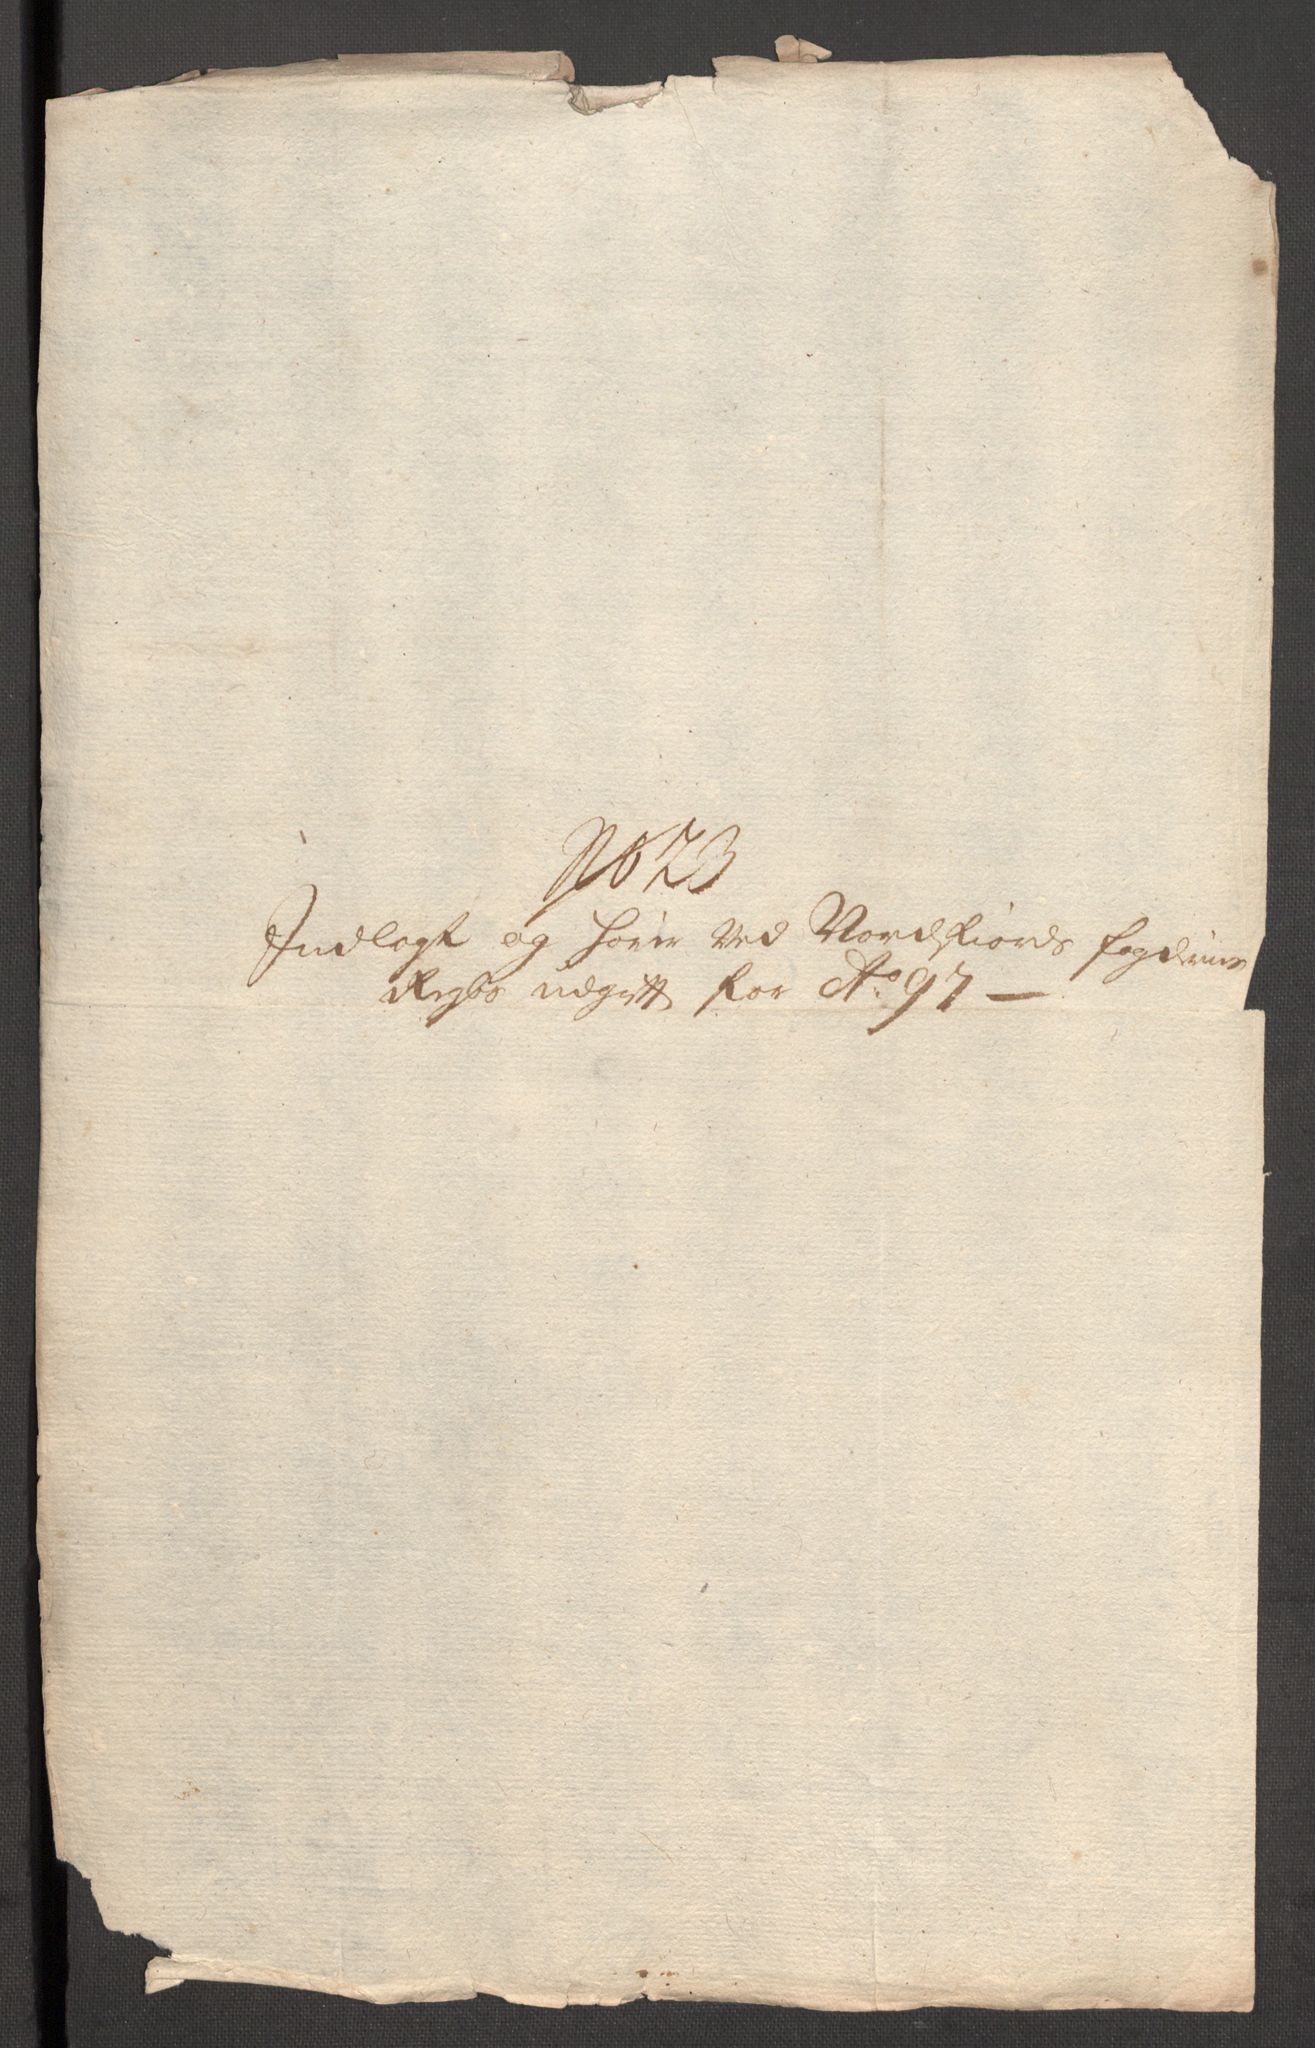 No 23
Indlagt og hører Ved Nordfiords fogderies
Regbs udgifft for Ao 97 —